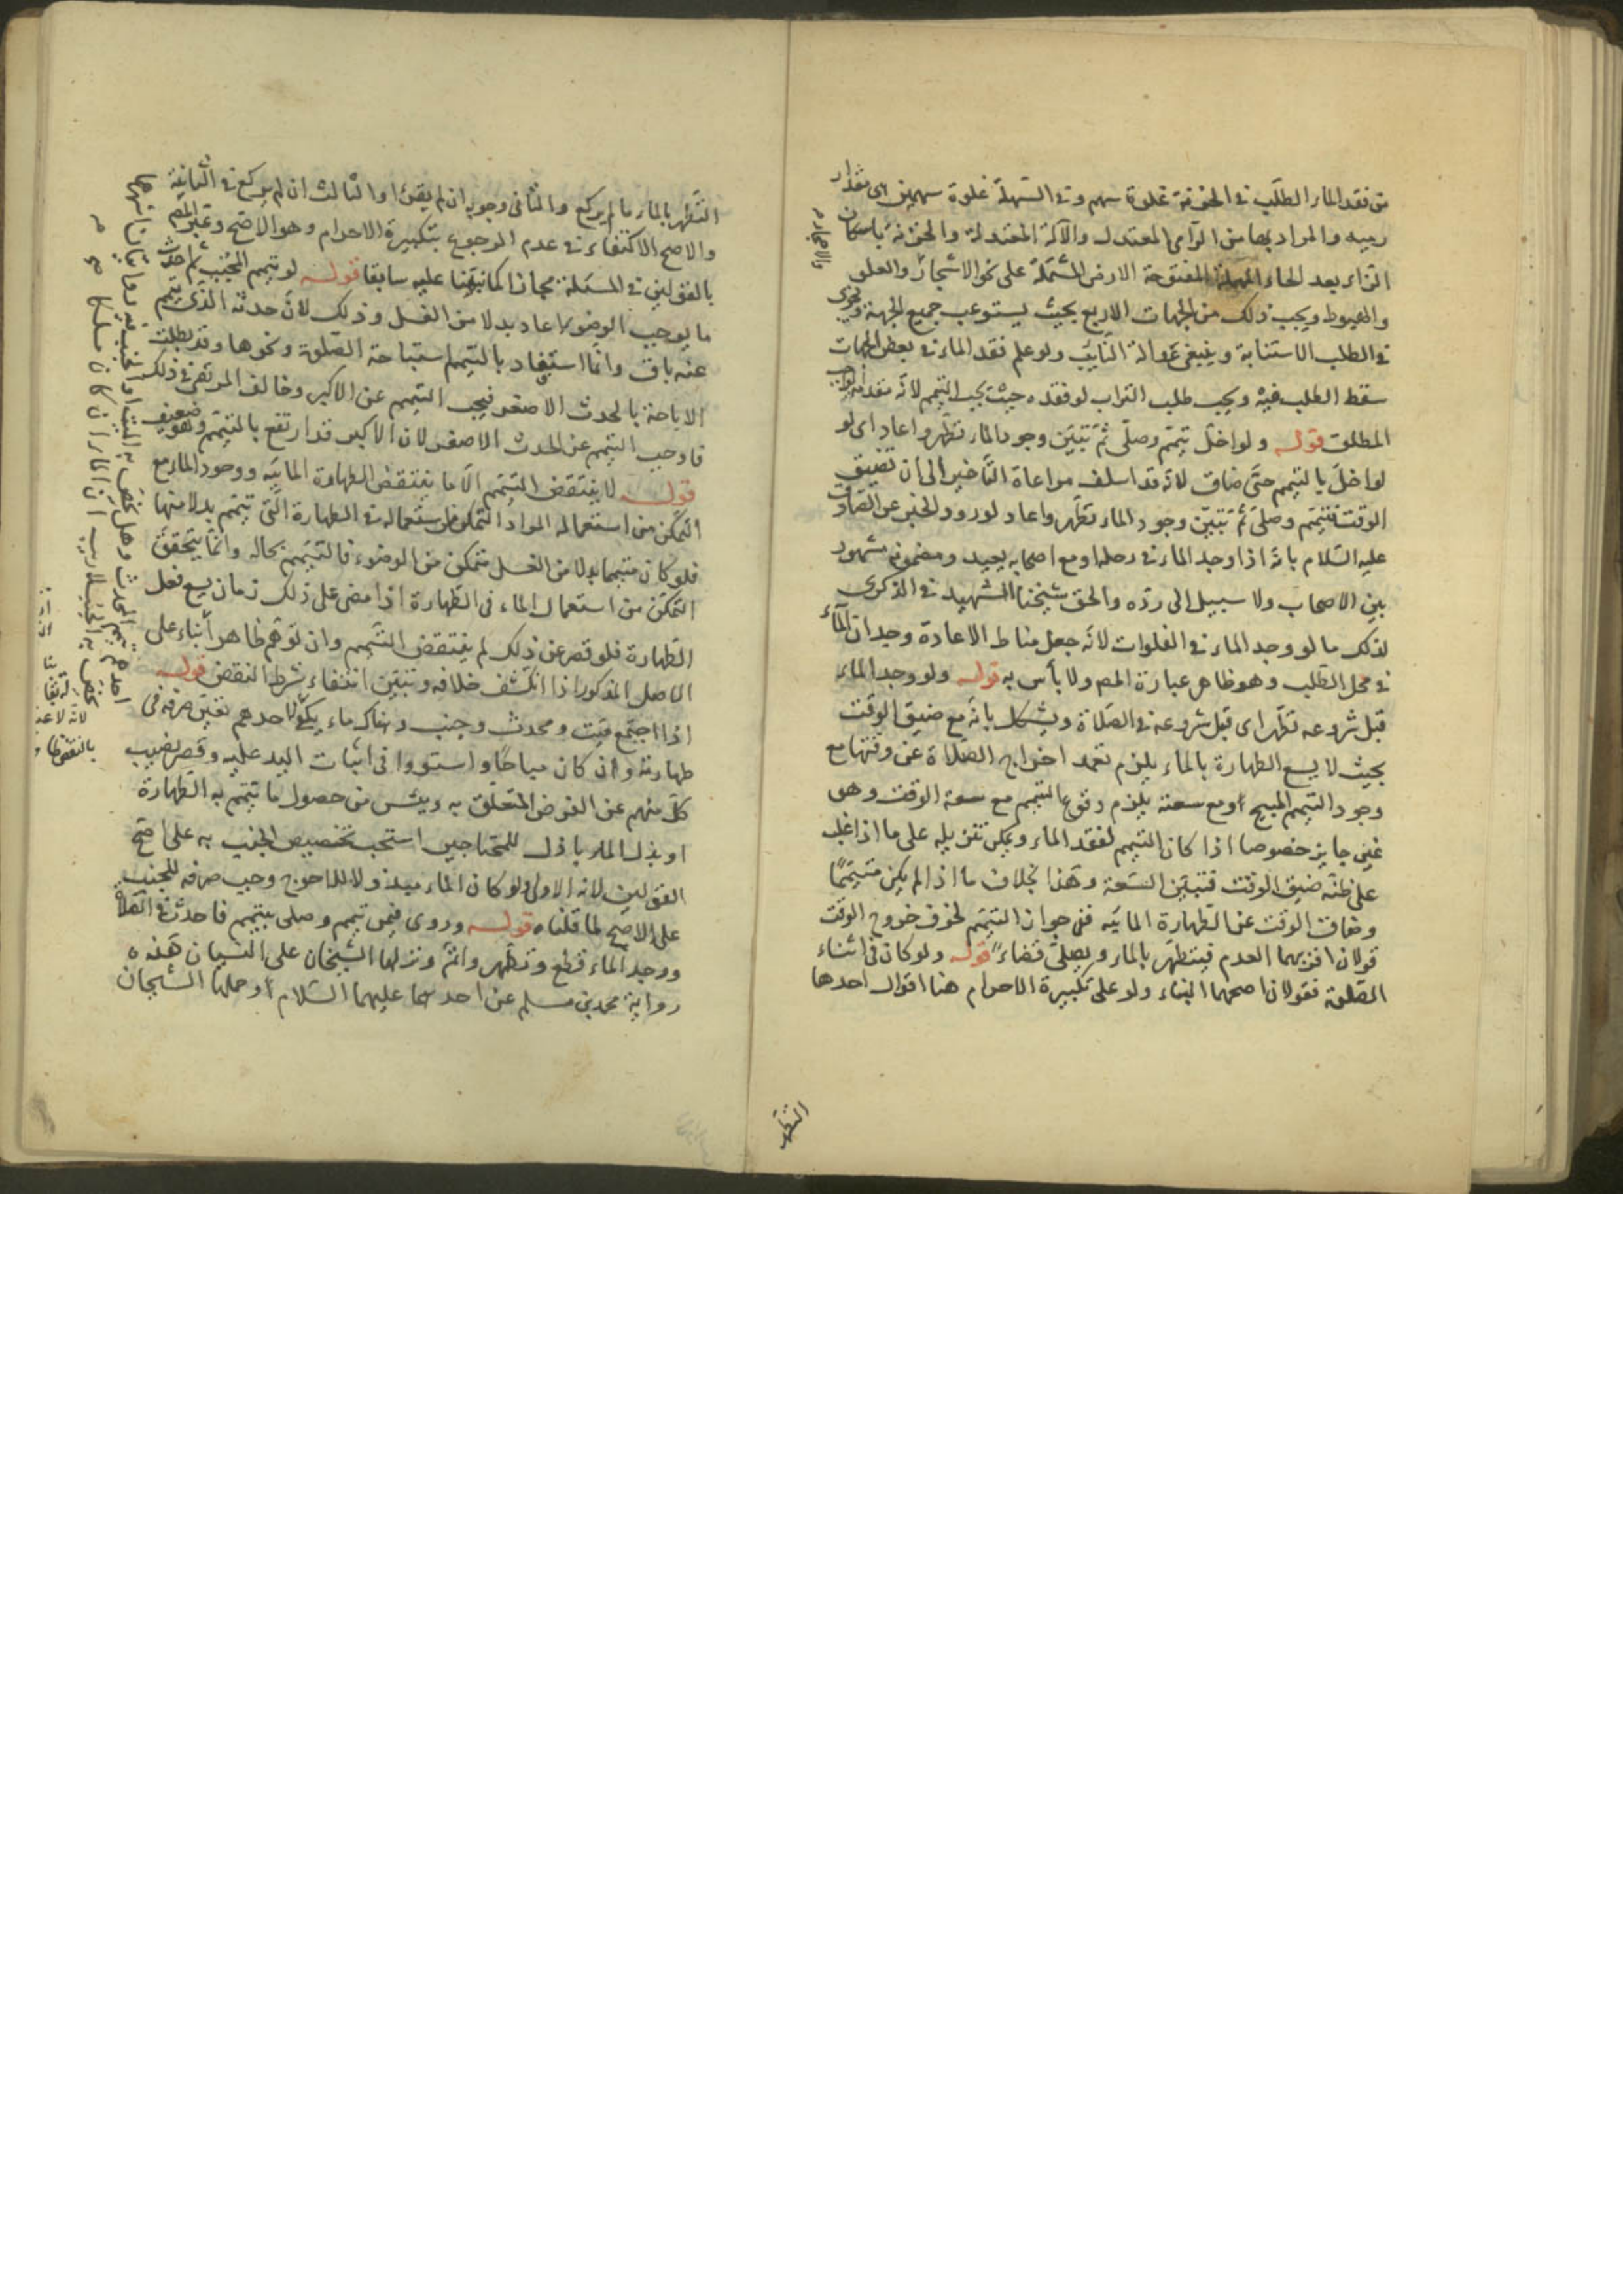 من فقد الماء الطلب في الحزنة غلوة سهم وفي السهلة غلوة سهمين اى مقدار
رميه والمراد بهما من الرامى المعتدل والآلة المعتدلة والحزنة باسكان
الزاء بعد الحاء المهملة المفتوحة الارض المشتملة على نحو الاشجار والعلو
والاحجار
والهبوط ويجب ذلك من الجهات الاربع بحيث يستوعب جميع الجهة ويجزى
في الطلب الاستنابة وينبغى عدالة النايب ولو علم فقد الماء في بعض الجهات
سقط الطلب فيه ويجب طلب التراب لو فقده حيث يجب التيمم لانه مقدمة الواجب
المطلق قوله ولو اخل تيمم وصلى ثم تبين وجود الماء تطهر واعاد اى لو
لو اخل بالتيمم حتى ضاق لانه قد اسلف مراعاة التاخير الى أن تضيق
الوقت فتيمم وصلى ثم تبين وجود الماء تطهر واعاد لورود الخبر عن الصادق
عليه السلام بانه اذا وجد الماء في رحله او مع اصحابه يعيد ومضمونه مشهور
بين الاصحاب ولا سبيل الى رده والحق شيخنا الشهيد في الذكرى
لذلك ما لو وجد الماء في الغلوات لانه جعل مناط الاعادة وجدان الماء
في محل الطلب وهو ظاهر عبارة المص ولا بأس به قوله ولو وجد الماء
قبل شروعه تطهر اى قبل شروعه في الصلاة ويشكل بانه مع ضيق الوقت
بحيث لا يسع الطهارة بالماء يلزم تعمد اخراج الصلاة عن وقتها مع
وجود التيمم المبيح او مع سعته يلزم وقوع التيمم مع سعة الوقت وهو
غير جايز خصوصا اذا كان التيمم لفقد الماء ويمكن تنزيله على ما اذا غلب
على ظنه ضيق الوقت فتبين السعة وهذا بخلاف ما اذا لم يكن متيمما
وضاق الوقت عن الطهارة المائيه ففى جواز التيمم لخوف خروج الوقت
قولان اقربهما العدم فيتطهر بالماء ويصلى قضاء قوله ولو كان في اثناء
الصلوة فقولان اصحهما البناء ولو على تكبيرة الاحرام هنا اقوال احدها
التطهر
التطهر بالماء ما لم يركع والثانى وجوبه ان لم يقرء او الثالث ان لم يركع في الثانية
والاصح الاكتفاء في عدم الرجوع بتكبيرة الاحرام وهو الاصح وعبر المص
بالقولين في المسئلة مجازا كما نبهنا عليه سابقا قوله لو تيمم المجنب ثم احدث
ما يوجب الوضوء اعاد بدلا من الغسل وذلك لان حدثه الذى تيمم
عنه باق وانما استفاد بالتيمم استباحة الصلوة ونحوها وقد بطلت
الاباحة بالحدث الاصغر فيجب التيمم عن الاكبر وخالف المرتضى في ذلك
فاوجب التيمم عن الحدث الاصغر لان الاكبر قد ارتفع بالتيمم وهو ضعيف
قوله لا ينتقض التيمم الا ما ينتقض الطهارة المائيه ووجود الماء مع
التمكن من استعماله المراد التمكن من استعماله في الطهارة التى تيمم بدلا منها
فلو كان متيمما بدلا من الغسل متمكن من الوضوء فالتيمم بحاله وانما يتحقق
التمكن من استعمال الماء في الطهارة اذا مضى على ذلك زمان يسع فعل
الطهارة فلو قصر عن ذلك لم ينتقض التيمم وان توهم ظاهر أبناء على
الاصل المذكور اذا انكشف خلافه وتبين انتفاء شرط النقض قوله
اذا اجتمع ميت ومحدث وجنب وهناك ماء يكفى لاحدهم تعين صرفه في
طهارته وان كان مباحا واستووا في اثبات اليد عليه وقصر نصيب
كل منهم عن الفرض المتعلق به ويئس من حصول ما تيمم به الطهارة
او بذل الماء باذل للمحتاجين استحب تخصيص الجنب به على اصح
القولين لانه الاولى ولو كان الماء مبذولا للاحوج وجب صرفه للجنب
على الاصح لما قلناه قوله وروى فيمن تيمم وصلى بتيمم فاحدث في الصلاة
ووجد الماء قطع وتطهر واتم ونزلها الشيخان على النسيان هذه
رواية محمد بن مسلم عن احدهما عليهما السلام وحملها الشيخان